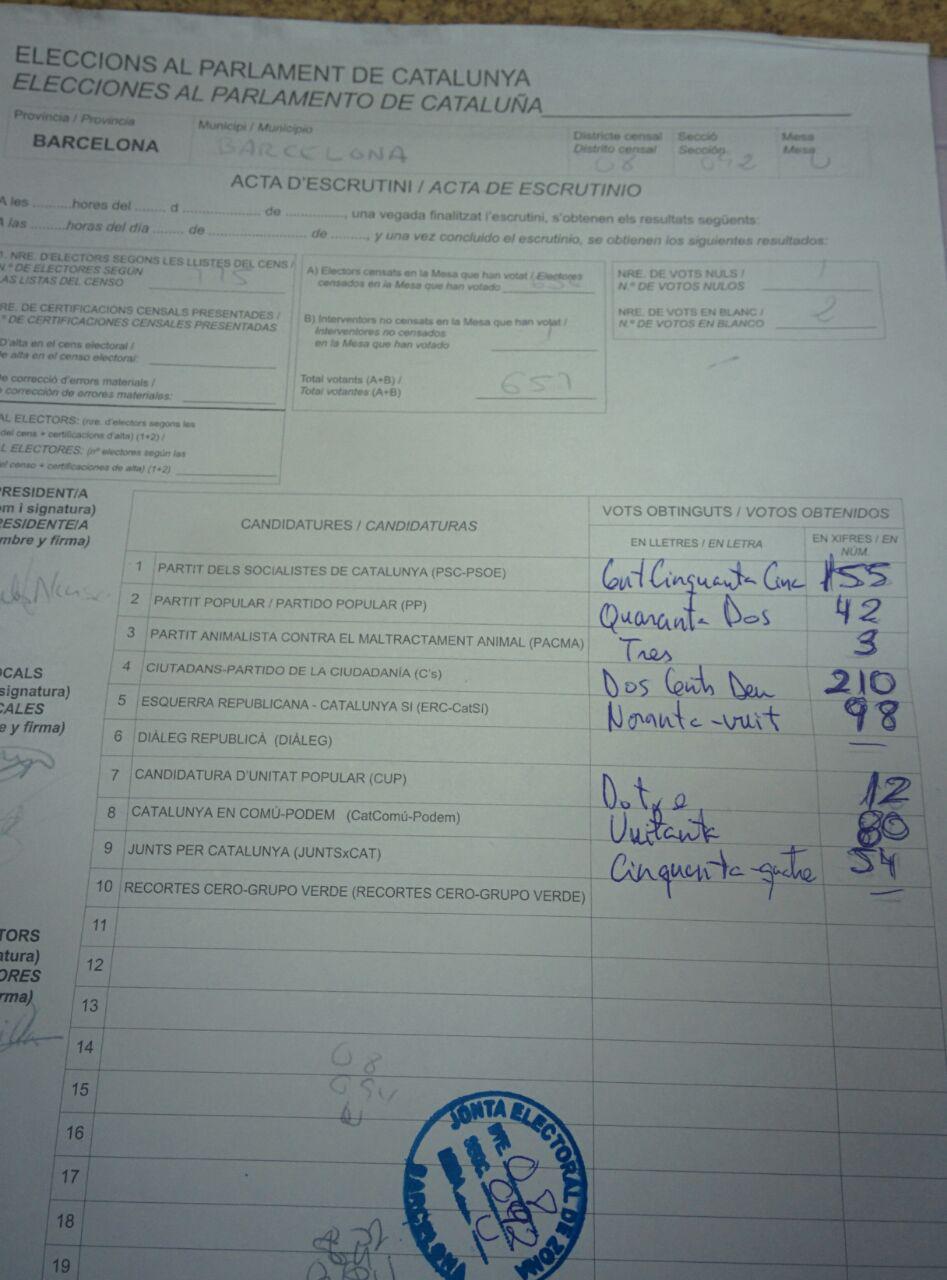 ELECCIONS AL PARLAMENT DE CATALUNYA
ELECCIONES AL PARLAMENTO DE CATALUÑA
Província / Provincia
BARCELONA
Municipi / Municipio
BARCELONA
Districte censal
Distrito censal
08
Secció
Sección
092
Mesa
Mesa
U
ACTA D'ESCRUTINI / ACTA DE ESCRUTINIO
A les .........hores del ........ d .................... de ..............., una vegada finalitzat l'escrutini, s'obtenen els resultats següents:
A las .........horas del día ....... de ........................... de .........., y una vez concluido el escrutinio, se obtienen los siguientes resultados:
1. NRE. D'ELECTORS SEGONS LES LLISTES DEL CENS /
N.º DE ELECTORES SEGÚN
LAS LISTAS DEL CENSO
NRE. DE CERTIFICACIONS CENSALS PRESENTADES /
N.º DE CERTIFICACIONES CENSALES PRESENTADAS
D'alta en el cens electoral /
de alta en el censo electoral:
de correcció d'errors materials /
de corrección de errores materiales:
AL ELECTORS: (nre. d'electors segons les
del cens + certificacions d'alta) (1+2) /
L ELECTORES: (nº electores según las
el censo + certificaciones de alta) (1+2)
A) Electors censats en la Mesa que han votat / Electores
censados en la Mesa que han votado
B) Interventors no censats en la Mesa que han votat /
Interventores no censados
en la Mesa que han votado
1
Total votants (A+B) /
Total votantes (A+B)
657
NRE. DE VOTS NULS /
N.º DE VOTOS NULOS
1
NRE. DE VOTS EN BLANC /
N.º DE VOTOS EN BLANCO
2
PRESIDENT/A
om i signatura)
RESIDENTE/A
mbre y firma)
OCALS
signatura)
CALES
e y firma)
TORS
atura)
ORES
rma)
CANDIDATURES / CANDIDATURAS
VOTS OBTINGUTS / VOTOS OBTENIDOS
EN LLETRES / EN LETRA
EN XIFRES / EN NÚM.
1 PARTIT DELS SOCIALISTES DE CATALUNYA (PSC-PSOE) Cent Cinquanta Cinc 155
2 PARTIT POPULAR / PARTIDO POPULAR (PP) Quaranta Dos 42
3 PARTIT ANIMALISTA CONTRA EL MALTRACTAMENT ANIMAL (PACMA) Tres 3
4 CIUTADANS-PARTIDO DE LA CIUDADANÍA (C's) Dos Cents Deu 210
5 ESQUERRA REPUBLICANA - CATALUNYA SI (ERC-CatSí) Noranta-vuit 98
6 DIÀLEG REPUBLICÀ (DIÀLEG) —
7 CANDIDATURA D'UNITAT POPULAR (CUP) Dotze 12
8 CATALUNYA EN COMÚ-PODEM (CatComú-Podem) Vuitanta 80
9 JUNTS PER CATALUNYA (JUNTSxCAT) Cinquenta-quatre 54
10 RECORTES CERO-GRUPO VERDE (RECORTES CERO-GRUPO VERDE) —
11
12
13
14
15
16
17
18
19
08
JUNTA ELECTORAL DE ZONA
BARCELONA
DTE. 08
SECC. 092
MESA U